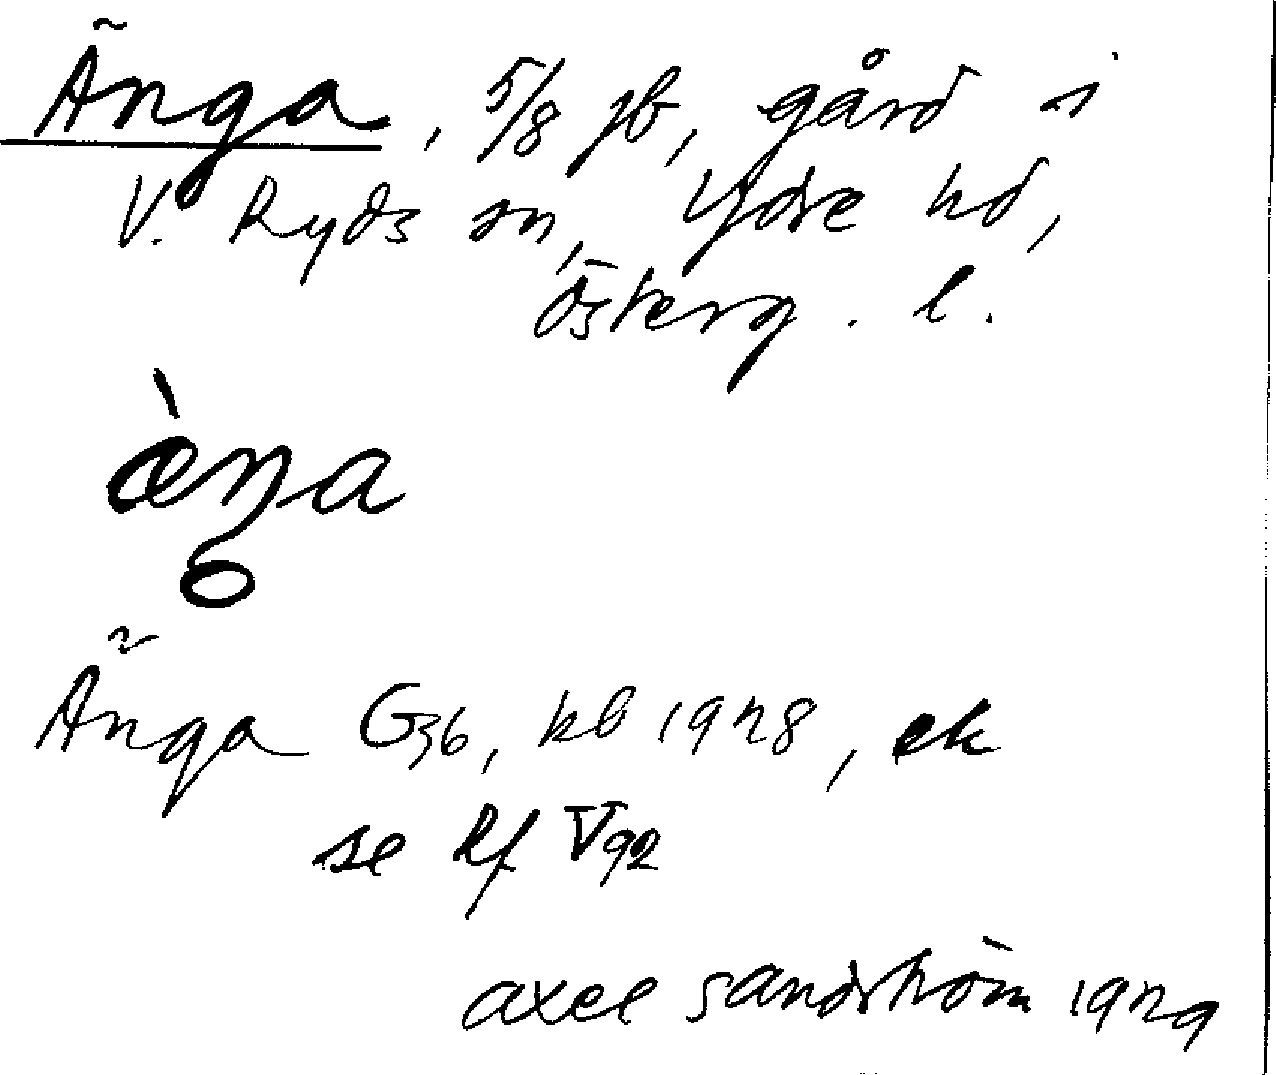 Änga, 5/8 jb, gård i
V. Ryds sn, Ydre hd,
Österg. l.
æ̀ŋa
Änga G36, kb 1928, ek
se Rf V92
axel sandström 1929